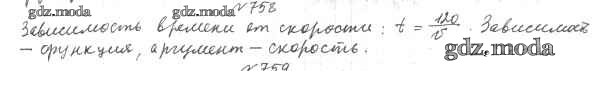 gdz.moda gdz.moda №758
Зависимость времени от скорости: t = 120/v. Зависимость
– функция, аргумент – скорость. gdz.moda
№759